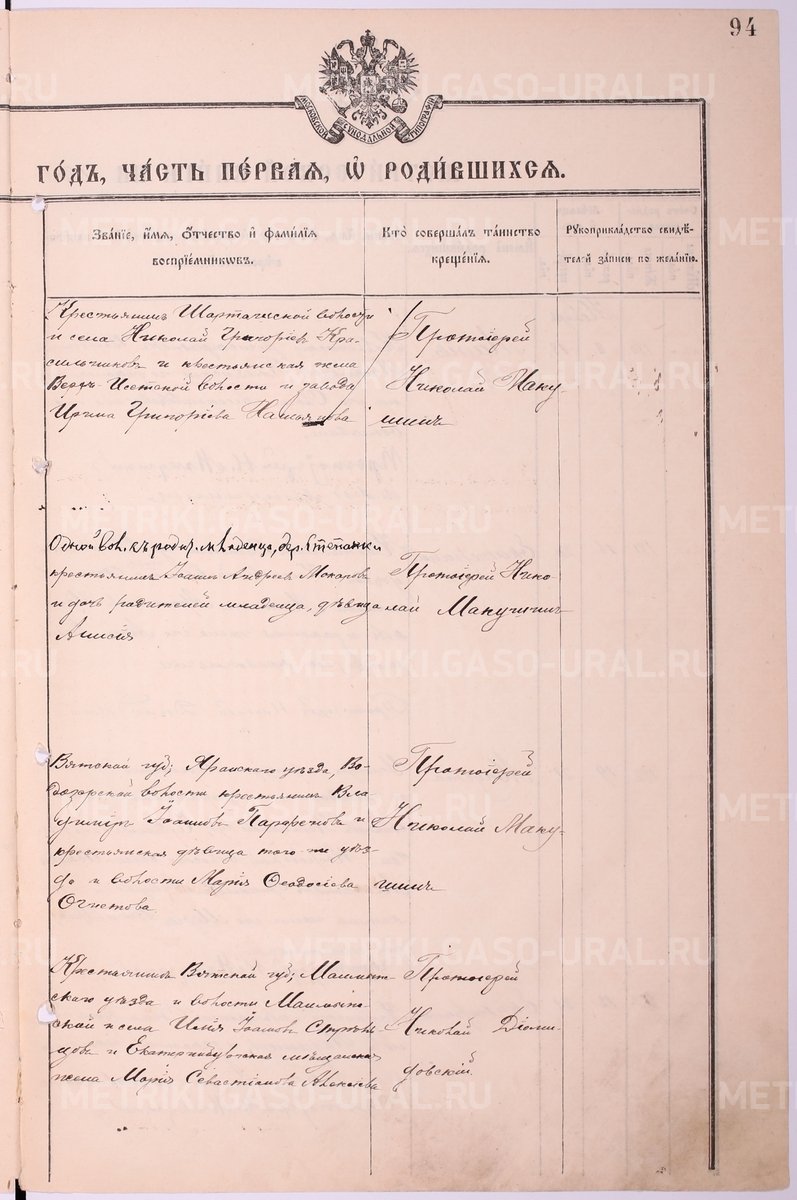 94
МОСКОВСКОЙ СУНОДАЛЬНОЙ ТИПОГРАФІИ
ГО́ДЪ, ЧА́СТЬ ПЕ́РВАЯ, Ѡ҆ РОДИ́ВШИХСЯ.
Зва́нїе, и҆́мя, ѻ҆́тчество и҆ фами́лїя
воспрїе́мниковъ.
Кто̀ соверша́лъ та́инство
креще́нїя.
Рꙋкоприкла́дство свидѣ́-
телей за́писи по жела́нїю.
Крестьянинъ Шарташской волости
и села Николай Григоріев Кра-
сильников и крестьянская жена
Верхъ-Исетской волости и завода
Ирина Григоріева
Протоіерей
Николай Маку-
шинъ
Одной вол. съ родит. младенца, дер. Степанки
крестьянинъ Іоаннъ Андреев Макаровъ
и дочь родителей младенца, дѣвица
Анисія
Протоіерей Нико-
лай Макушинъ
Вятской губ; Яранскаго уѣзда, Во-
волости крестьянинъ Вла-
димиръ Іоаннов Парфенова и
крестьянская дѣвица того-же уѣз-
да и волости Марія Феодосіева
Огнетова
Протоіерей
Николай Маку-
шинъ
Крестьянинъ Вятской губ; Малмыж-
скаго уѣзда и волости
села Илія Іоаннов Стрѣль-
цовъ и Екатеринбургская мѣщанская
жена Марія Севастіанова Алексѣева
Протоіерей
Николай Діоми-
довскій
METRIKI.GASO-URAL.RU